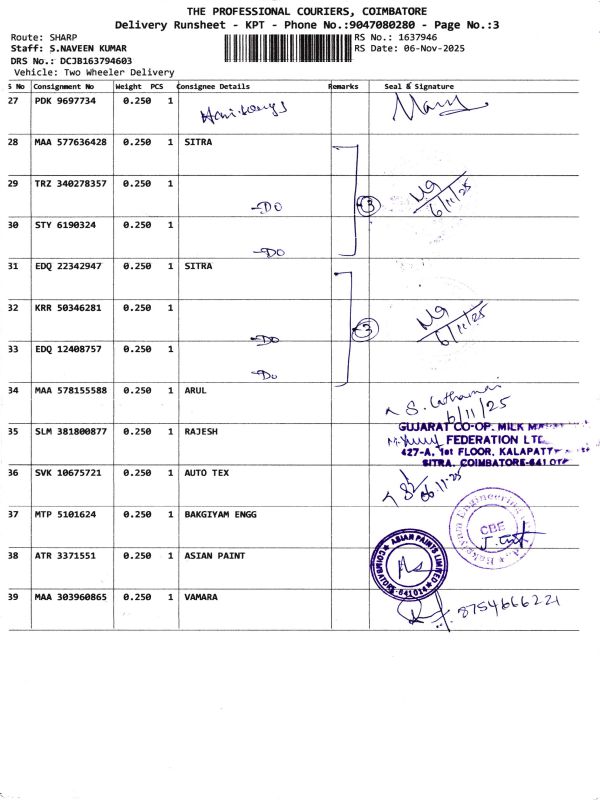 THE PROFESSIONAL COURIERS, COIMBATORE
Delivery Runsheet - KPT - Phone No.:9047080280 - Page No.:3
Route: SHARP
RS No.: 1637946
Staff: S.NAVEEN KUMAR
RS Date: 06-Nov-2025
DRS No.: DCJB163794603
Vehicle: Two Wheeler Delivery
S No Consignment No Weight PCS Consignee Details Remarks Seal & Signature
27 PDK 9697734 0.250 1
28 MAA 577636428 0.250 1 SITRA
29 TRZ 340278357 0.250 1
-DO 3 6/11/25
30 STY 6190324 0.250 1
-DO
31 EDQ 22342947 0.250 1 SITRA
32 KRR 50346281 0.250 1
-DO 3 6/11/25
33 EDQ 12408757 0.250 1
-Do
34 MAA 578155588 0.250 1 ARUL
6/11/25
35 SLM 381800877 0.250 1 RAJESH
GUJARAT CO-OP. MILK
FEDERATION LTD
427-A, 1st FLOOR, KALAPATT
SITRA, COIMBATORE-641 014
36 SVK 10675721 0.250 1 AUTO TEX
06.11.25
37 MTP 5101624 0.250 1 BAKGIYAM ENGG
Bakgiyam Engineering
CBE
38 ATR 3371551 0.250 1 ASIAN PAINT
ASIAN PAINTS LIMITED
COIMBATORE-641014
39 MAA 303960865 0.250 1 VAMARA
8754666221